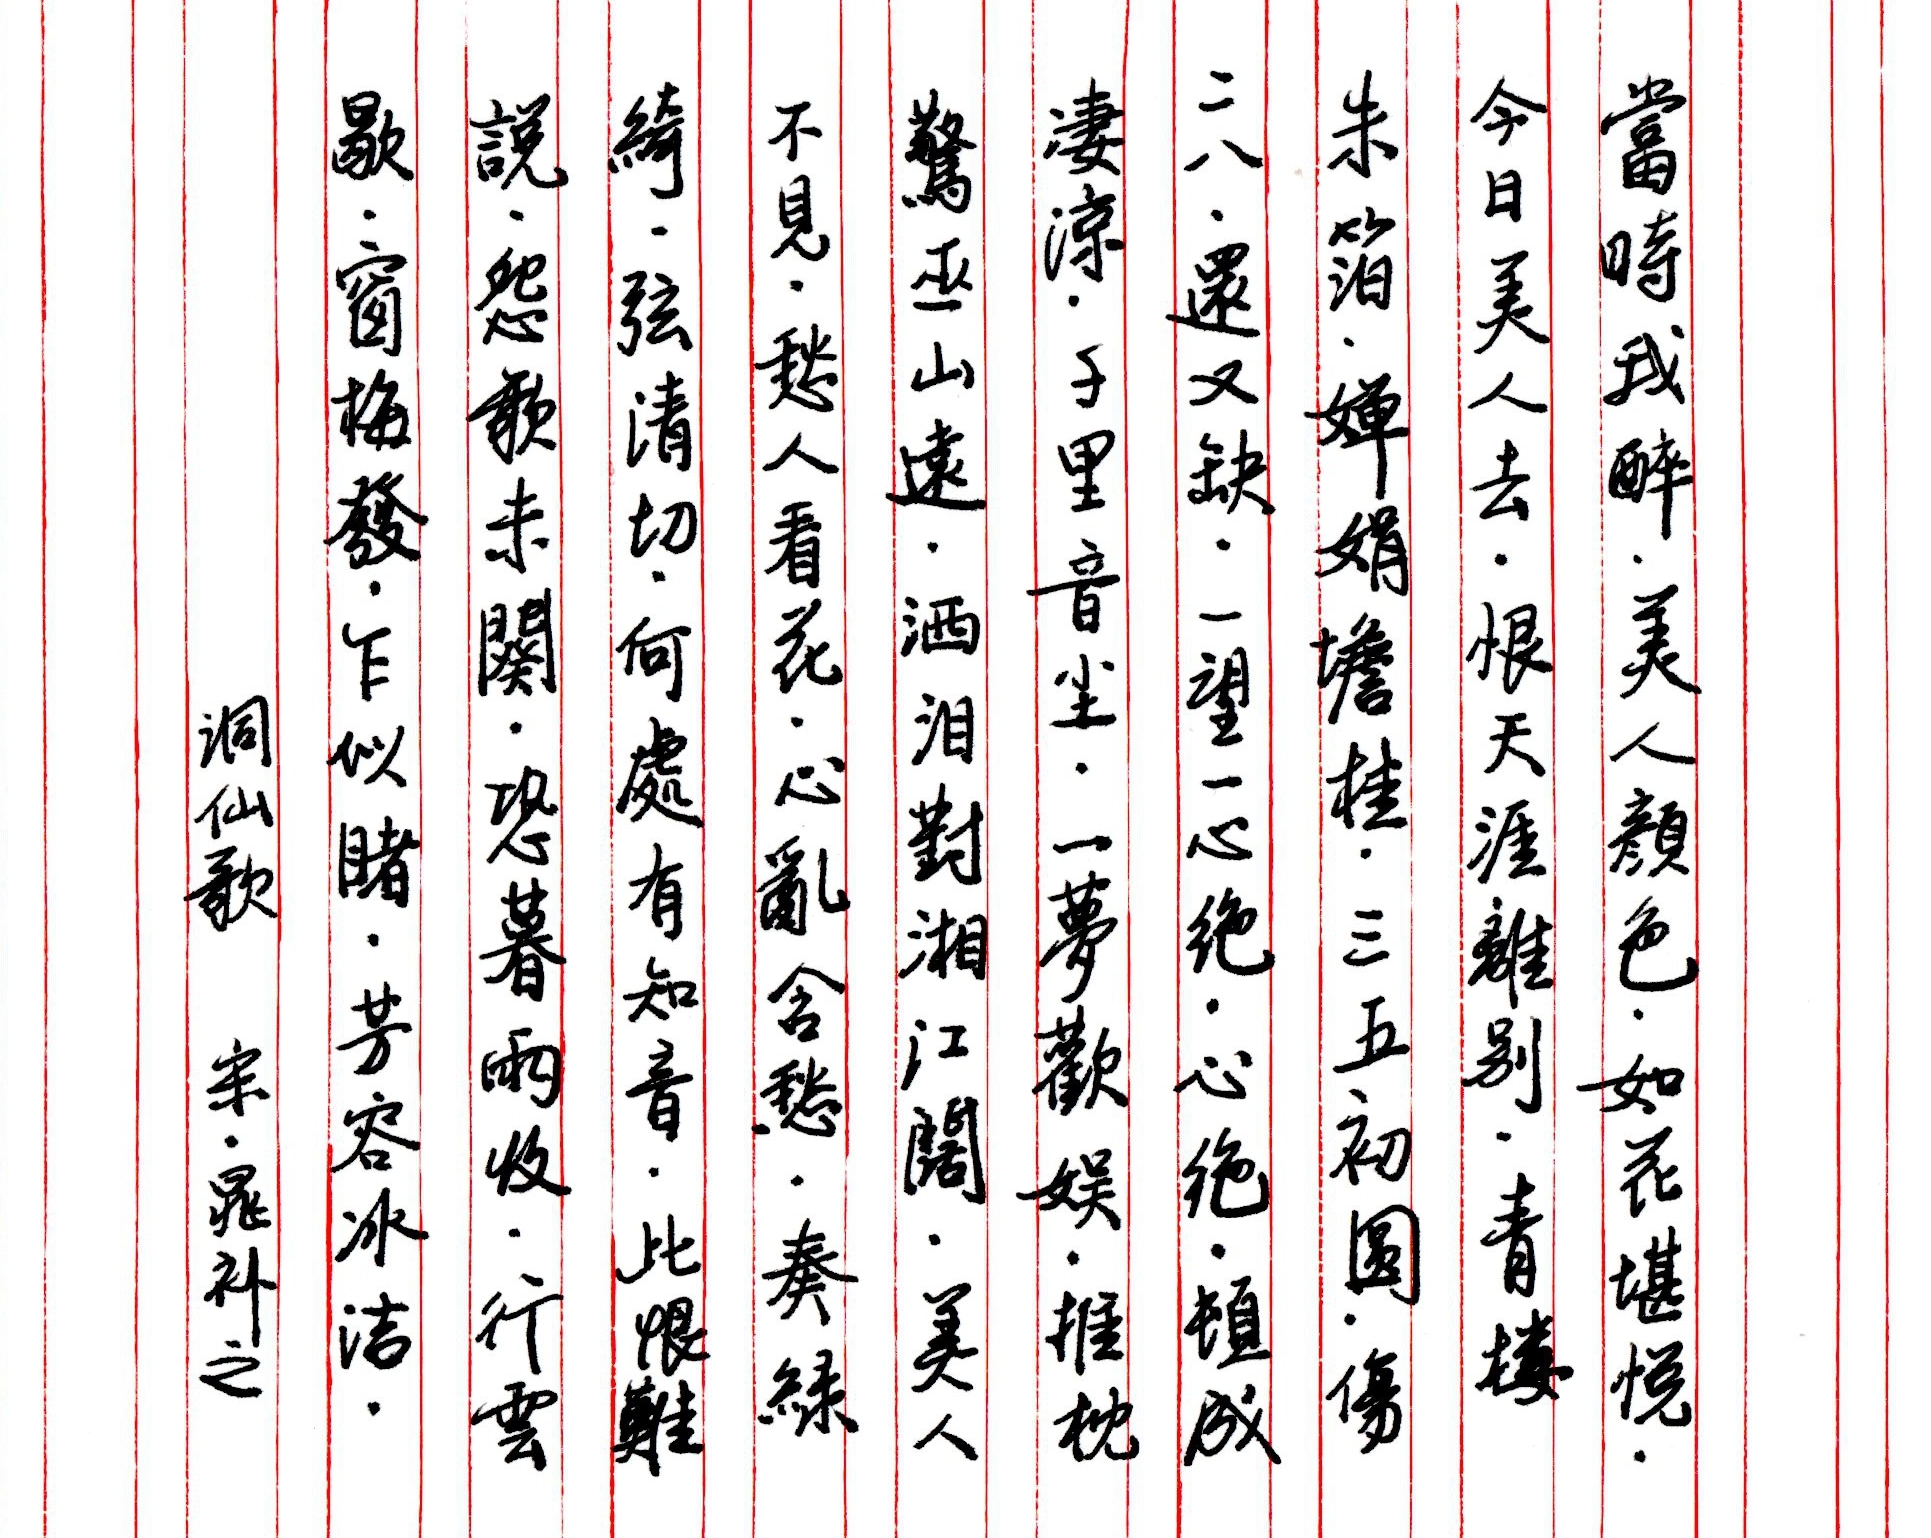 當時我醉·美人顏色·如花堪悅·
今日美人去·恨天涯離別·青樓
朱箔·嬋娟蟾桂·三五初圓·傷
二八·還又缺·一望一心絶·心絶·頓成
凄涼·千里音尘·一夢歡娱·推枕
驚巫山遠·洒泪對湘江闊·美人
不見·愁人看花·心亂含愁·奏緑
綺·弦清切·何處有知音·此恨難
説·怨歌未闋·恐暮雨收·行雲
歇·窗梅發·乍似睹·芳容冰洁·
洞仙歌 宋·晁补之